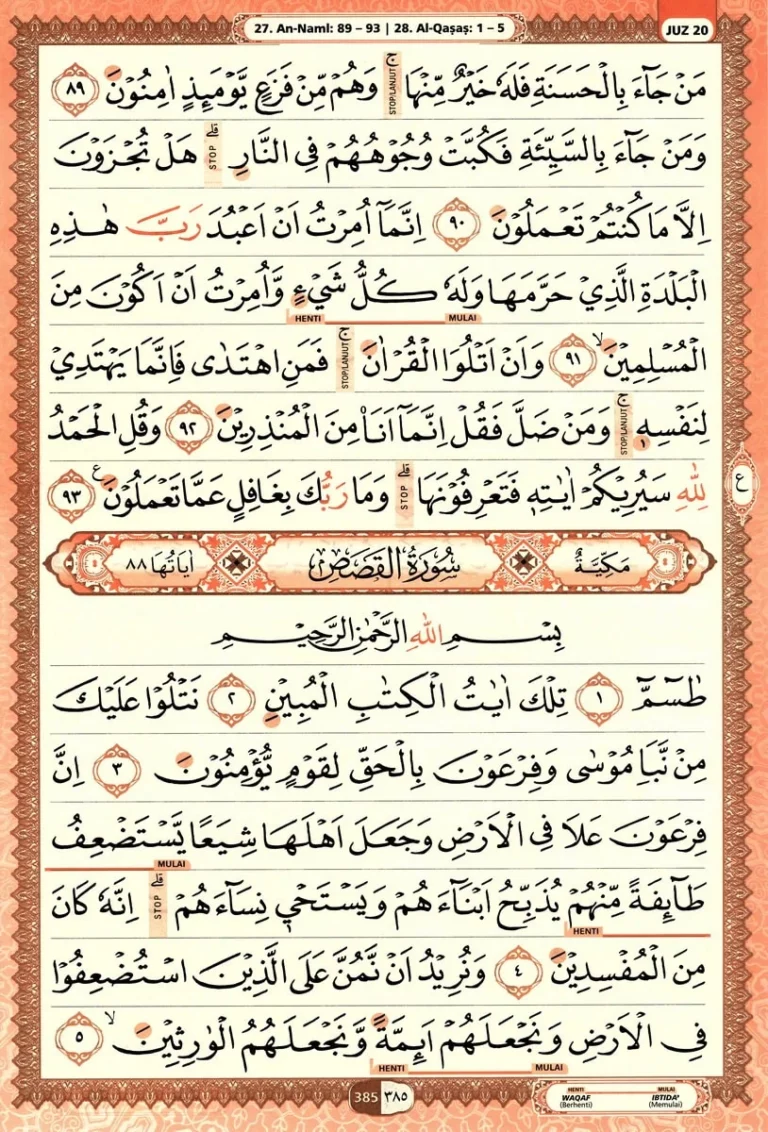 27. An-Naml: 89 – 93 | 28. Al-Qaṣaṣ: 1 – 5
JUZ 20
مَنْ جَاۤءَ بِالْحَسَنَةِ فَلَهٗ خَيْرٌ مِّنْهَا ۚ وَهُمْ مِّنْ فَزَعٍ يَّوْمَىِٕذٍ اٰمِنُوْنَ ٨٩
STOP/LANJUT
وَمَنْ جَاۤءَ بِالسَّيِّئَةِ فَكُبَّتْ وُجُوْهُهُمْ فِى النَّارِ ۗ هَلْ تُجْزَوْنَ
STOP
اِلَّا مَا كُنْتُمْ تَعْمَلُوْنَ ٩٠ اِنَّمَآ اُمِرْتُ اَنْ اَعْبُدَ رَبَّ هٰذِهِ
الْبَلْدَةِ الَّذِيْ حَرَّمَهَا وَلَهٗ كُلُّ شَيْءٍ وَّاُمِرْتُ اَنْ اَكُوْنَ مِنَ
HENTI MULAI
الْمُسْلِمِيْنَ ۙ ٩١ وَاَنْ اَتْلُوَا الْقُرْاٰنَ ۚ فَمَنِ اهْتَدٰى فَاِنَّمَا يَهْتَدِيْ
STOP/LANJUT
لِنَفْسِهٖ ۚ وَمَنْ ضَلَّ فَقُلْ اِنَّمَآ اَنَا۠ مِنَ الْمُنْذِرِيْنَ ٩٢ وَقُلِ الْحَمْدُ
STOP/LANJUT
لِلّٰهِ سَيُرِيْكُمْ اٰيٰتِهٖ فَتَعْرِفُوْنَهَا ۗ وَمَا رَبُّكَ بِغَافِلٍ عَمَّا تَعْمَلُوْنَ ࣖ ٩٣
STOP
ع
مَكِّيَّةٌ سُوْرَةُ الْقَصَصِ اٰيَاتُهَا ٨٨
بِسْمِ اللّٰهِ الرَّحْمٰنِ الرَّحِيْمِ
طٰسۤمّۤ ١ تِلْكَ اٰيٰتُ الْكِتٰبِ الْمُبِيْنِ ٢ نَتْلُوْا عَلَيْكَ
مِنْ نَّبَاِ مُوْسٰى وَفِرْعَوْنَ بِالْحَقِّ لِقَوْمٍ يُّؤْمِنُوْنَ ٣ اِنَّ
فِرْعَوْنَ عَلَا فِى الْاَرْضِ وَجَعَلَ اَهْلَهَا شِيَعًا يَّسْتَضْعِفُ
MULAI
طَاۤىِٕفَةً مِّنْهُمْ يُذَبِّحُ اَبْنَاۤءَهُمْ وَيَسْتَحْيٖ نِسَاۤءَهُمْ ۗ اِنَّهٗ كَانَ
STOP
HENTI
مِنَ الْمُفْسِدِيْنَ ٤ وَنُرِيْدُ اَنْ نَّمُنَّ عَلَى الَّذِيْنَ اسْتُضْعِفُوْا
فِى الْاَرْضِ وَنَجْعَلَهُمْ اَىِٕمَّةً وَّنَجْعَلَهُمُ الْوٰرِثِيْنَ ۙ ٥
HENTI MULAI
385 ٣٨٥
HENTI MULAI
WAQAF IBTIDA'
(Berhenti) (Memulai)